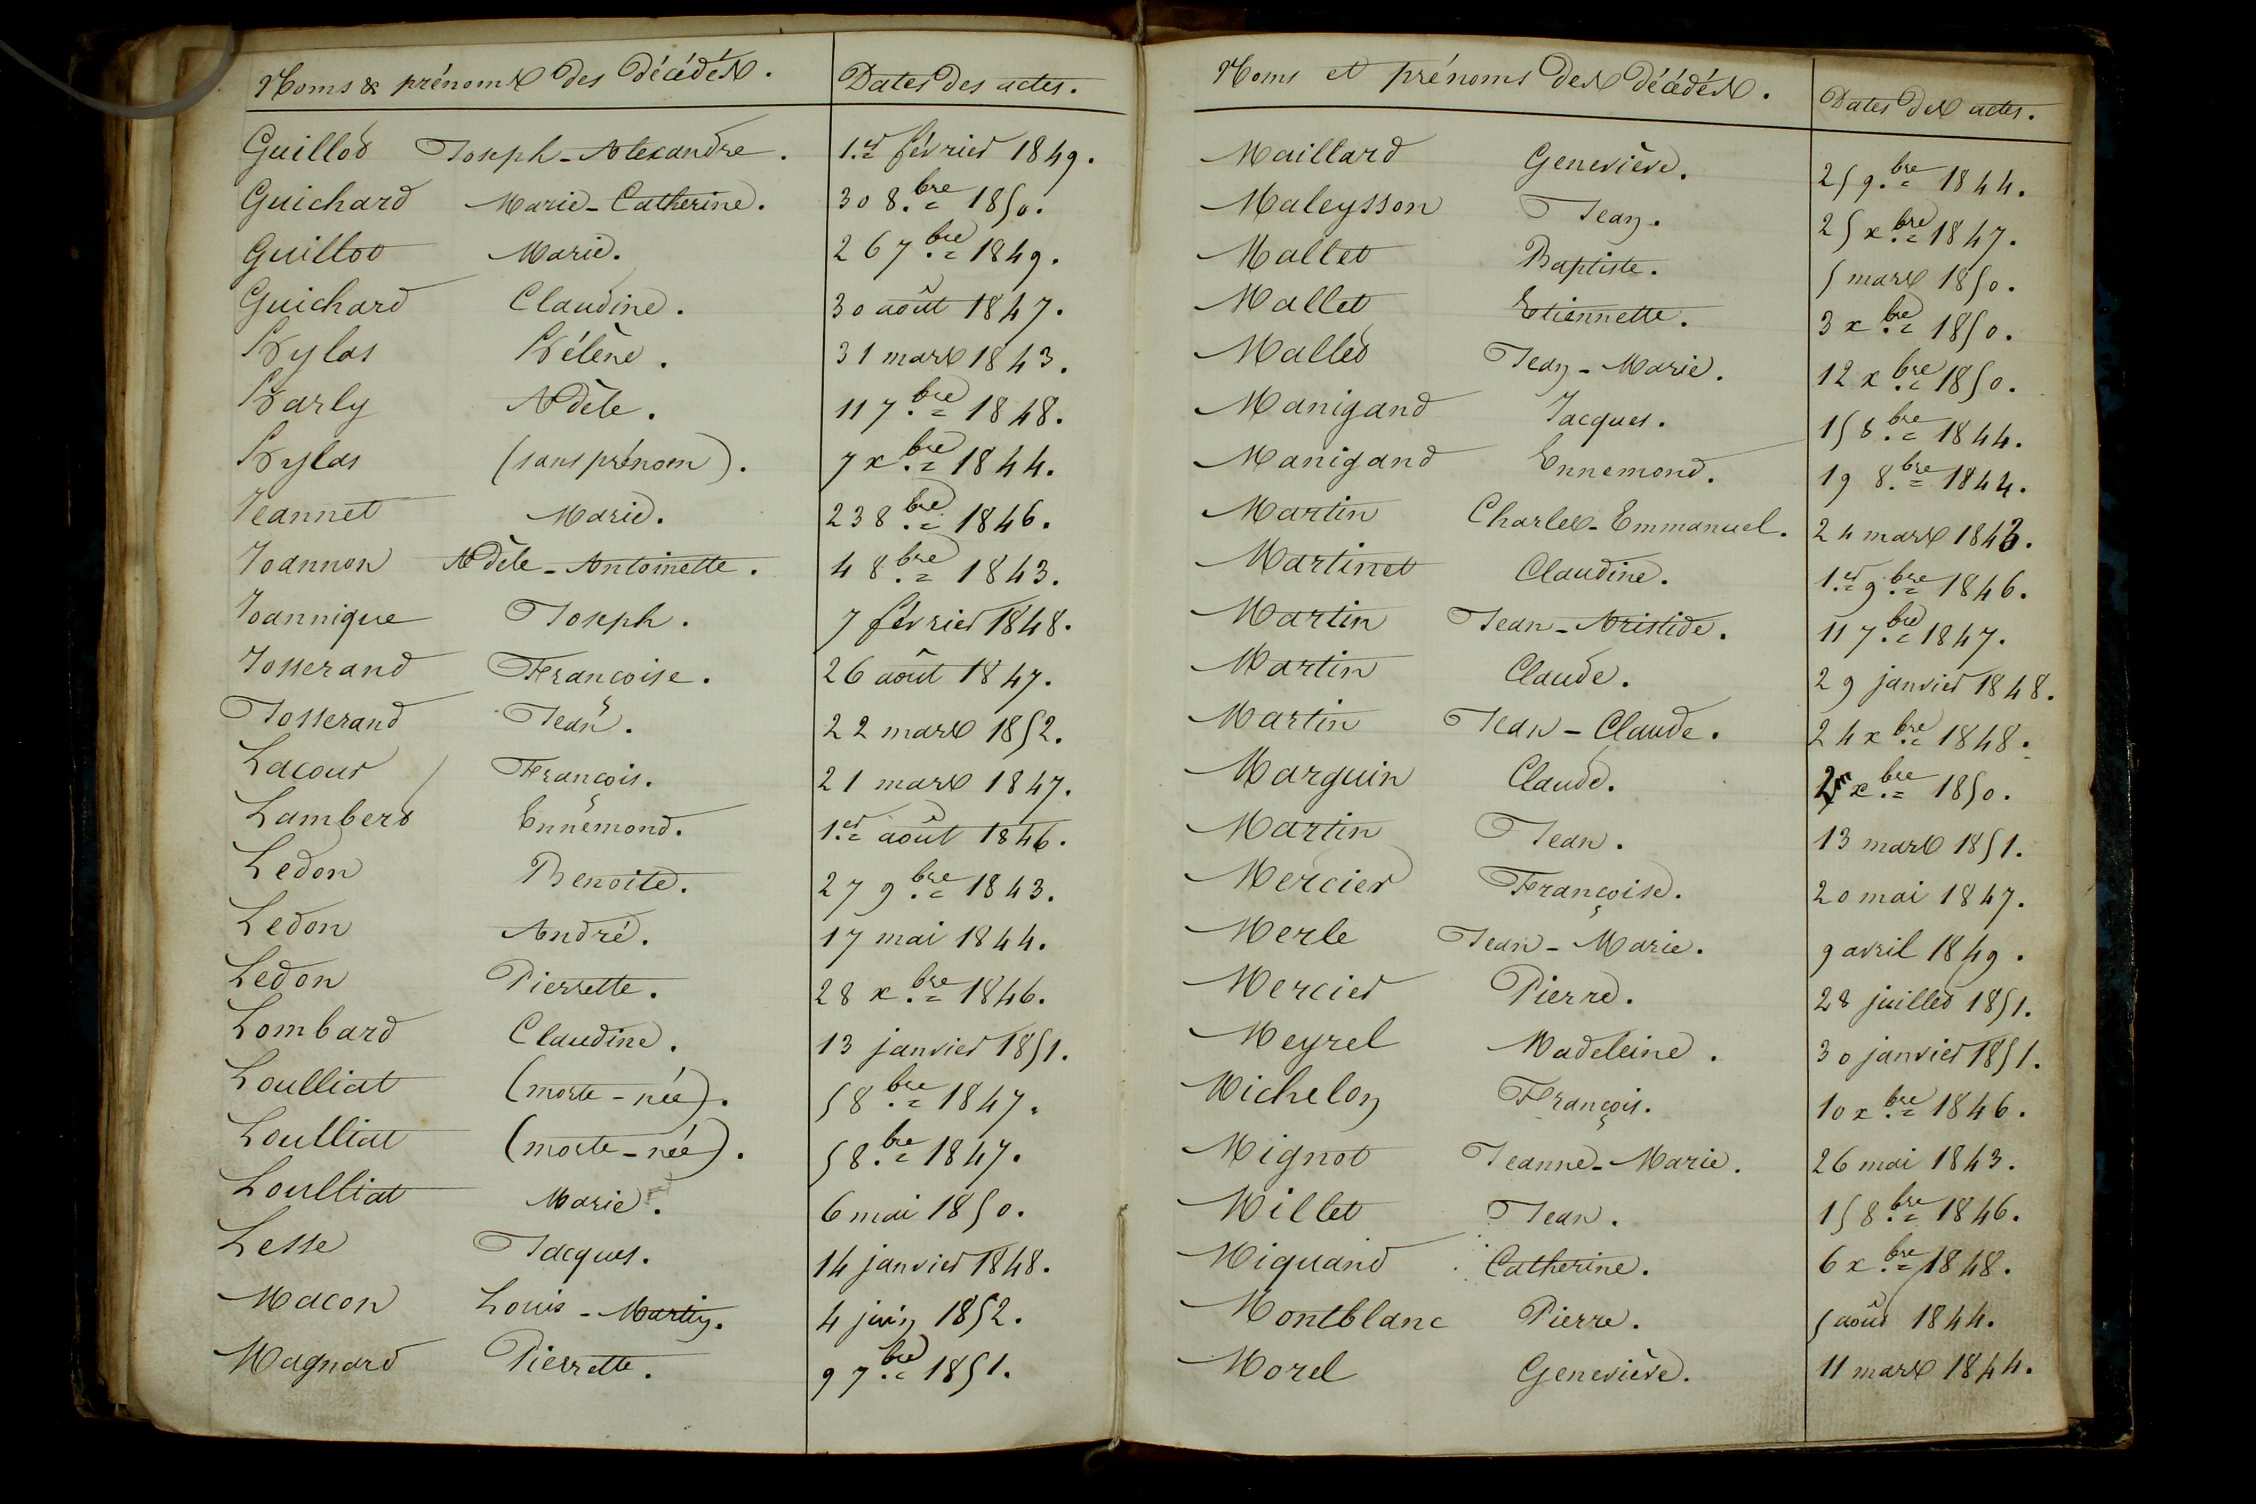 Noms & prénoms des décédés. Dates des actes.
Guillot Joseph-Alexandre. 1.er février 1849.
Guichard Marie-Catherine. 30 8.bre 1850.
Guillot Marie. 26 7.bre 1849.
Guichard Claudine. 30 août 1847.
Hylas Hélène. 31 mars 1843.
Harly Adèle. 11 7.bre 1848.
Hylas (sans prénom). 7 x.bre 1844.
Jeannet Marie. 23 8.bre 1846.
Joannon Adèle-Antoinette. 4 8.bre 1843.
Joannique Joseph. 7 février 1848.
Josserand Françoise. 26 août 1847.
Josserand Jean. 22 mars 1852.
Lacour François. 21 mars 1847.
Lambert Ennemond. 1.er août 1846.
Ledon Benoite. 27 9.bre 1843.
Ledon André. 17 mai 1844.
Ledon Pierrette. 28 x.bre 1846.
Lombard Claudine. 13 janvier 1851.
Loulliat (morte-née). 5 8.bre 1847.
Loulliat (morte-née). 5 8.bre 1847.
Loulliat Marie. 6 mai 1850.
Lesse Jacques. 14 janvier 1848.
Macon Louis-Martin. 4 juin 1852.
Magnard Pierrette. 9 7.bre 1851.
Noms et prénoms des décédés. Dates des actes.
Maillard Geneviève. 25 9.bre 1844.
Maleysson Jean. 25 x.bre 1847.
Mallet Baptiste. 5 mars 1850.
Mallet Etiennette. 3 x.bre 1850.
Mallet Jean-Marie. 12 x.bre 1850.
Manigand Jacques. 15 8.bre 1844.
Manigand Ennemond. 19 8.bre 1844.
Martin Charles-Emmanuel. 24 mars 1843.
Martinet Claudine. 1.er 9.bre 1846.
Martin Jean-Aristide. 11 7.bre 1847.
Martin Claude. 29 janvier 1848.
Martin Jean-Claude. 24 x.bre 1848.
Marguin Claude. x.bre 1850.
Martin Jean. 13 mars 1851.
Mercier Françoise. 20 mai 1847.
Merle Jean-Marie. 9 avril 1849.
Mercier Pierre. 28 juillet 1851.
Meyrel Madeleine. 30 janvier 1851.
Michelon François. 10 x.bre 1846.
Mignot Jeanne-Marie. 26 mai 1843.
Millet Jean. 15 8.bre 1846.
Miquand Catherine. 6 x.bre 1848.
Montblanc Pierre. 5 août 1844.
Morel Geneviève. 11 mars 1844.